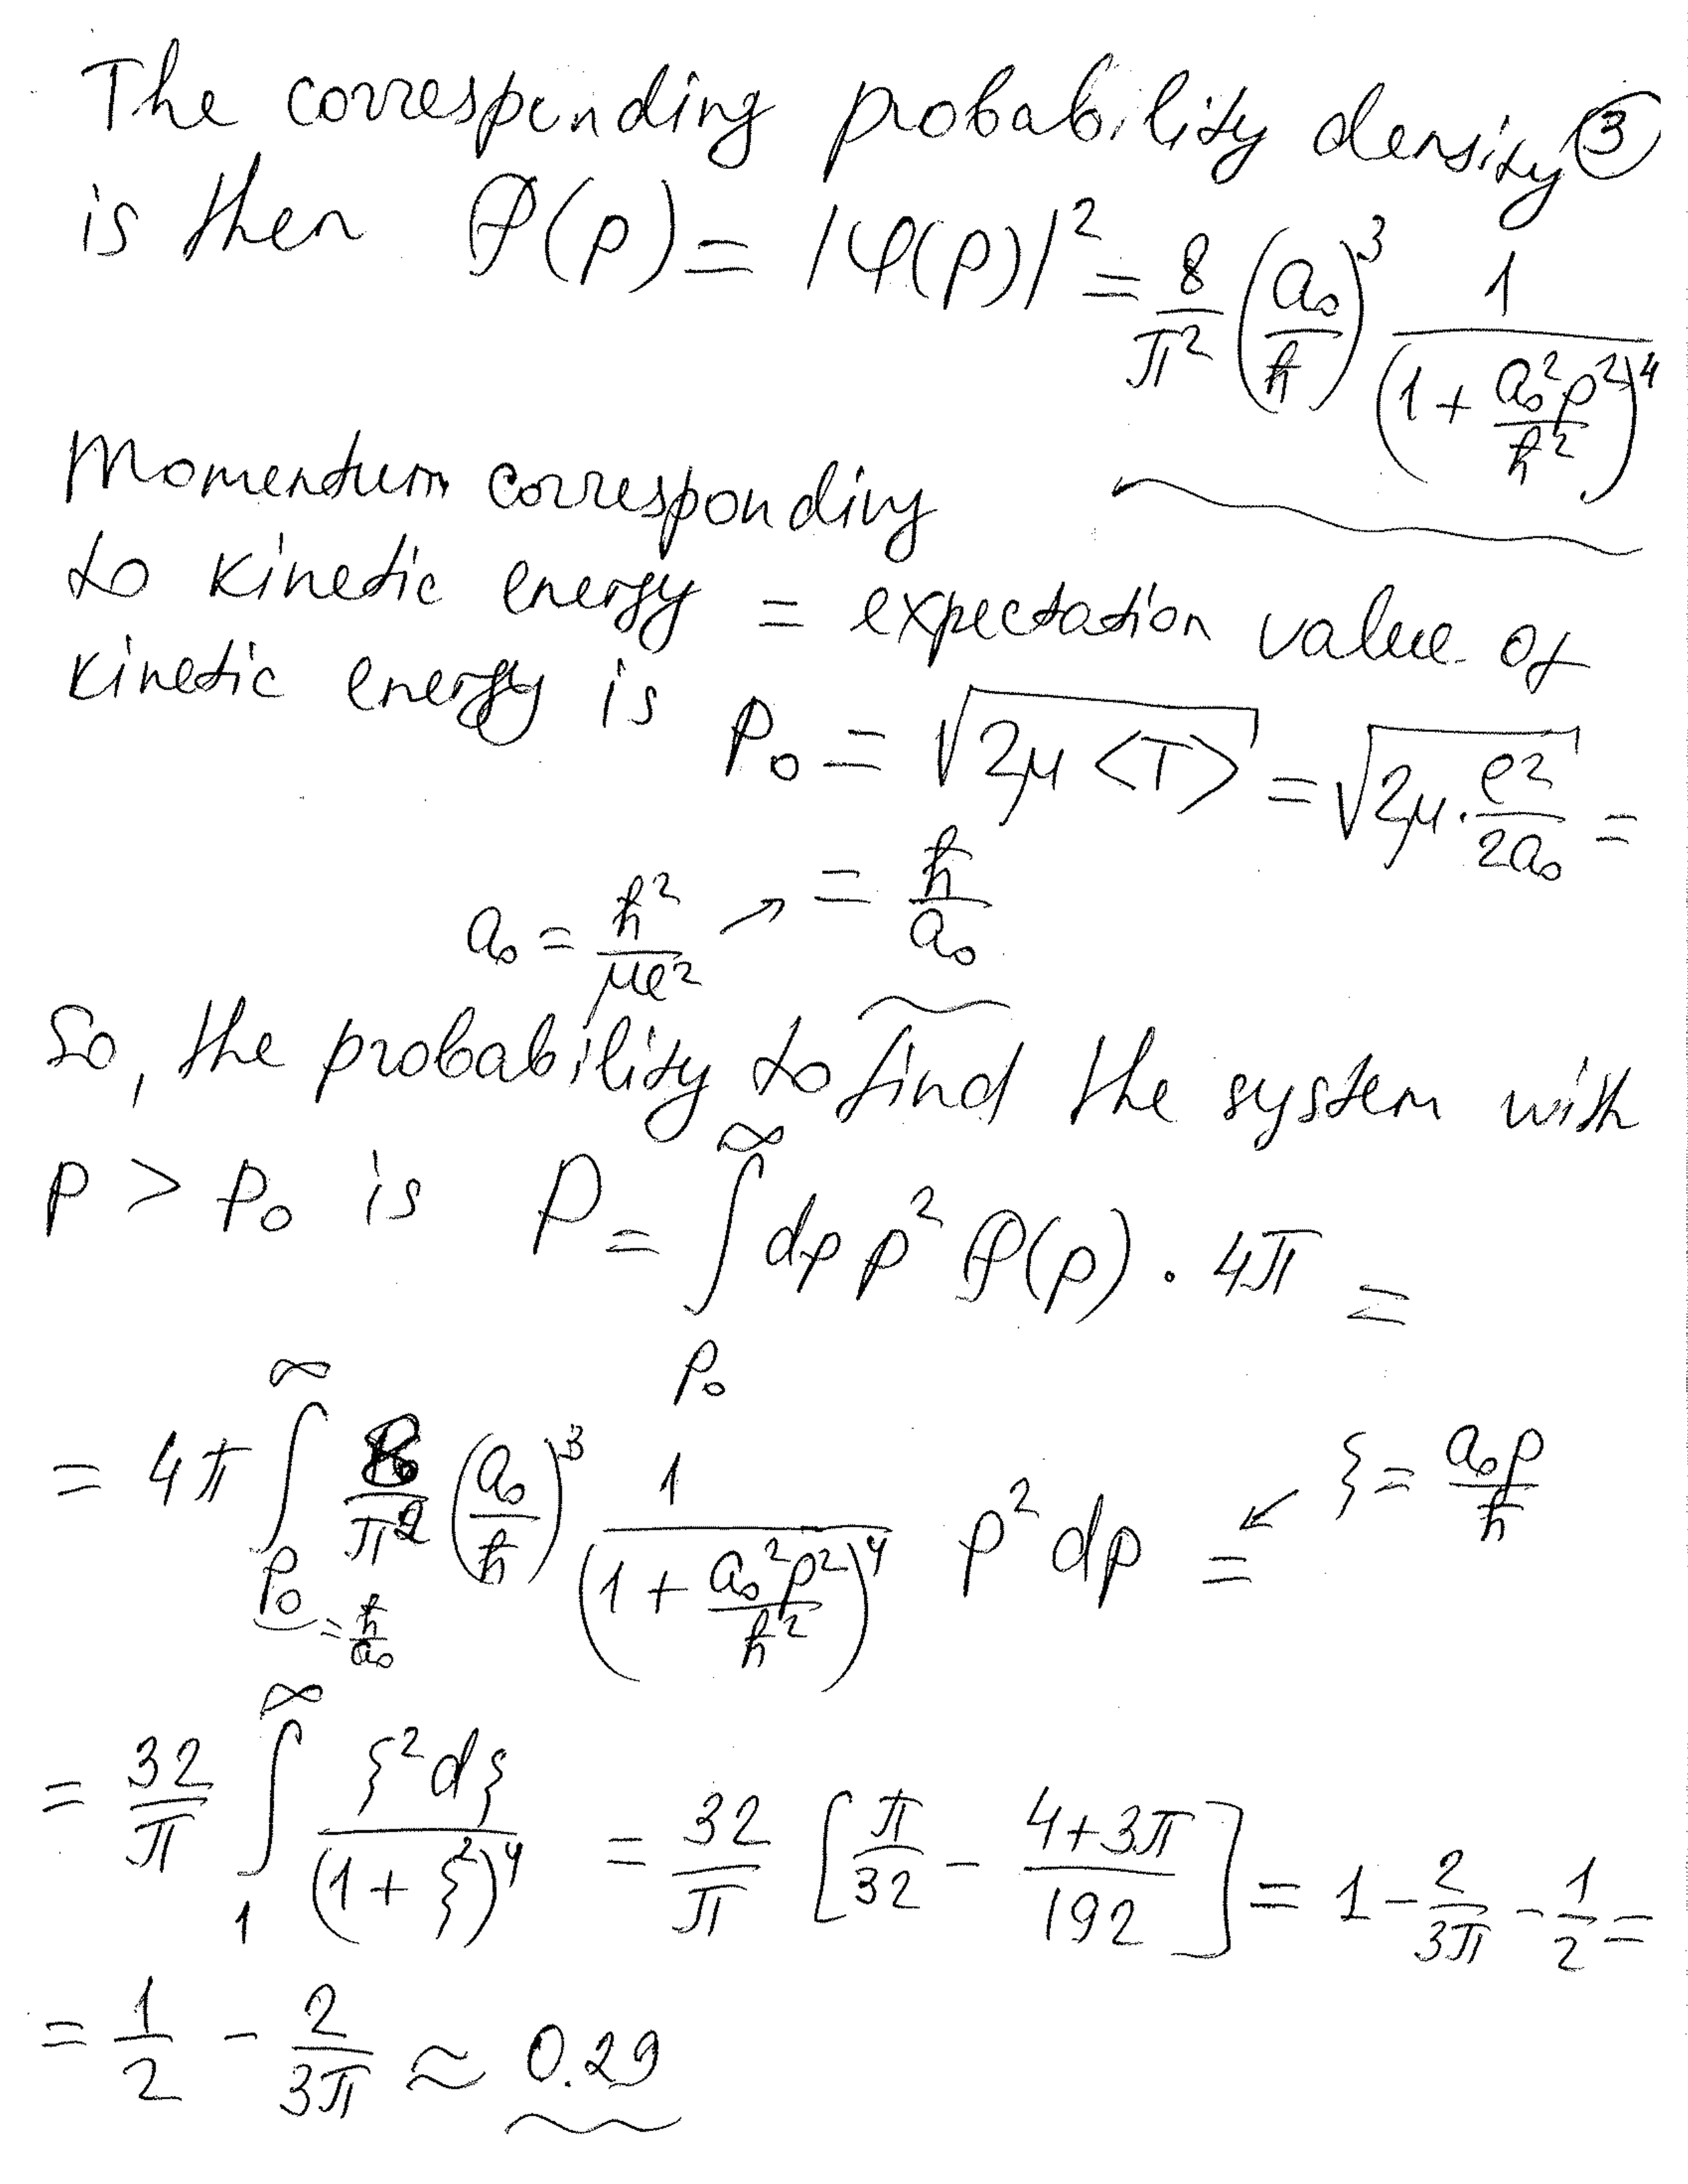 The corresponding probability density ③
is then 𝒫(p) = |φ(p)|² = 8/π² (a₀/ħ)³ 1/(1 + a₀²p²/ħ²)⁴
Momentum corresponding
to kinetic energy = expectation value of
kinetic energy is p₀ = √(2μ <T>) = √(2μ · e²/2a₀) =
a₀ = ħ²/μe² ↗ = ħ/a₀
So, the probability to find the system with
p > p₀ is P = ∫_{p₀}^{∞} dp p² 𝒫(p) · 4π =
= 4π ∫_{p₀ = ħ/a₀}^{∞} 8/π² (a₀/ħ)³ 1/(1 + a₀²p²/ħ²)⁴ p² dp = ↙ ξ = a₀p/ħ
= 32/π ∫_{1}^{∞} ξ²dξ/(1 + ξ²)⁴ = 32/π [π/32 − (4+3π)/192] = 1 − 2/3π − 1/2 =
= 1/2 − 2/3π ≈ 0.29